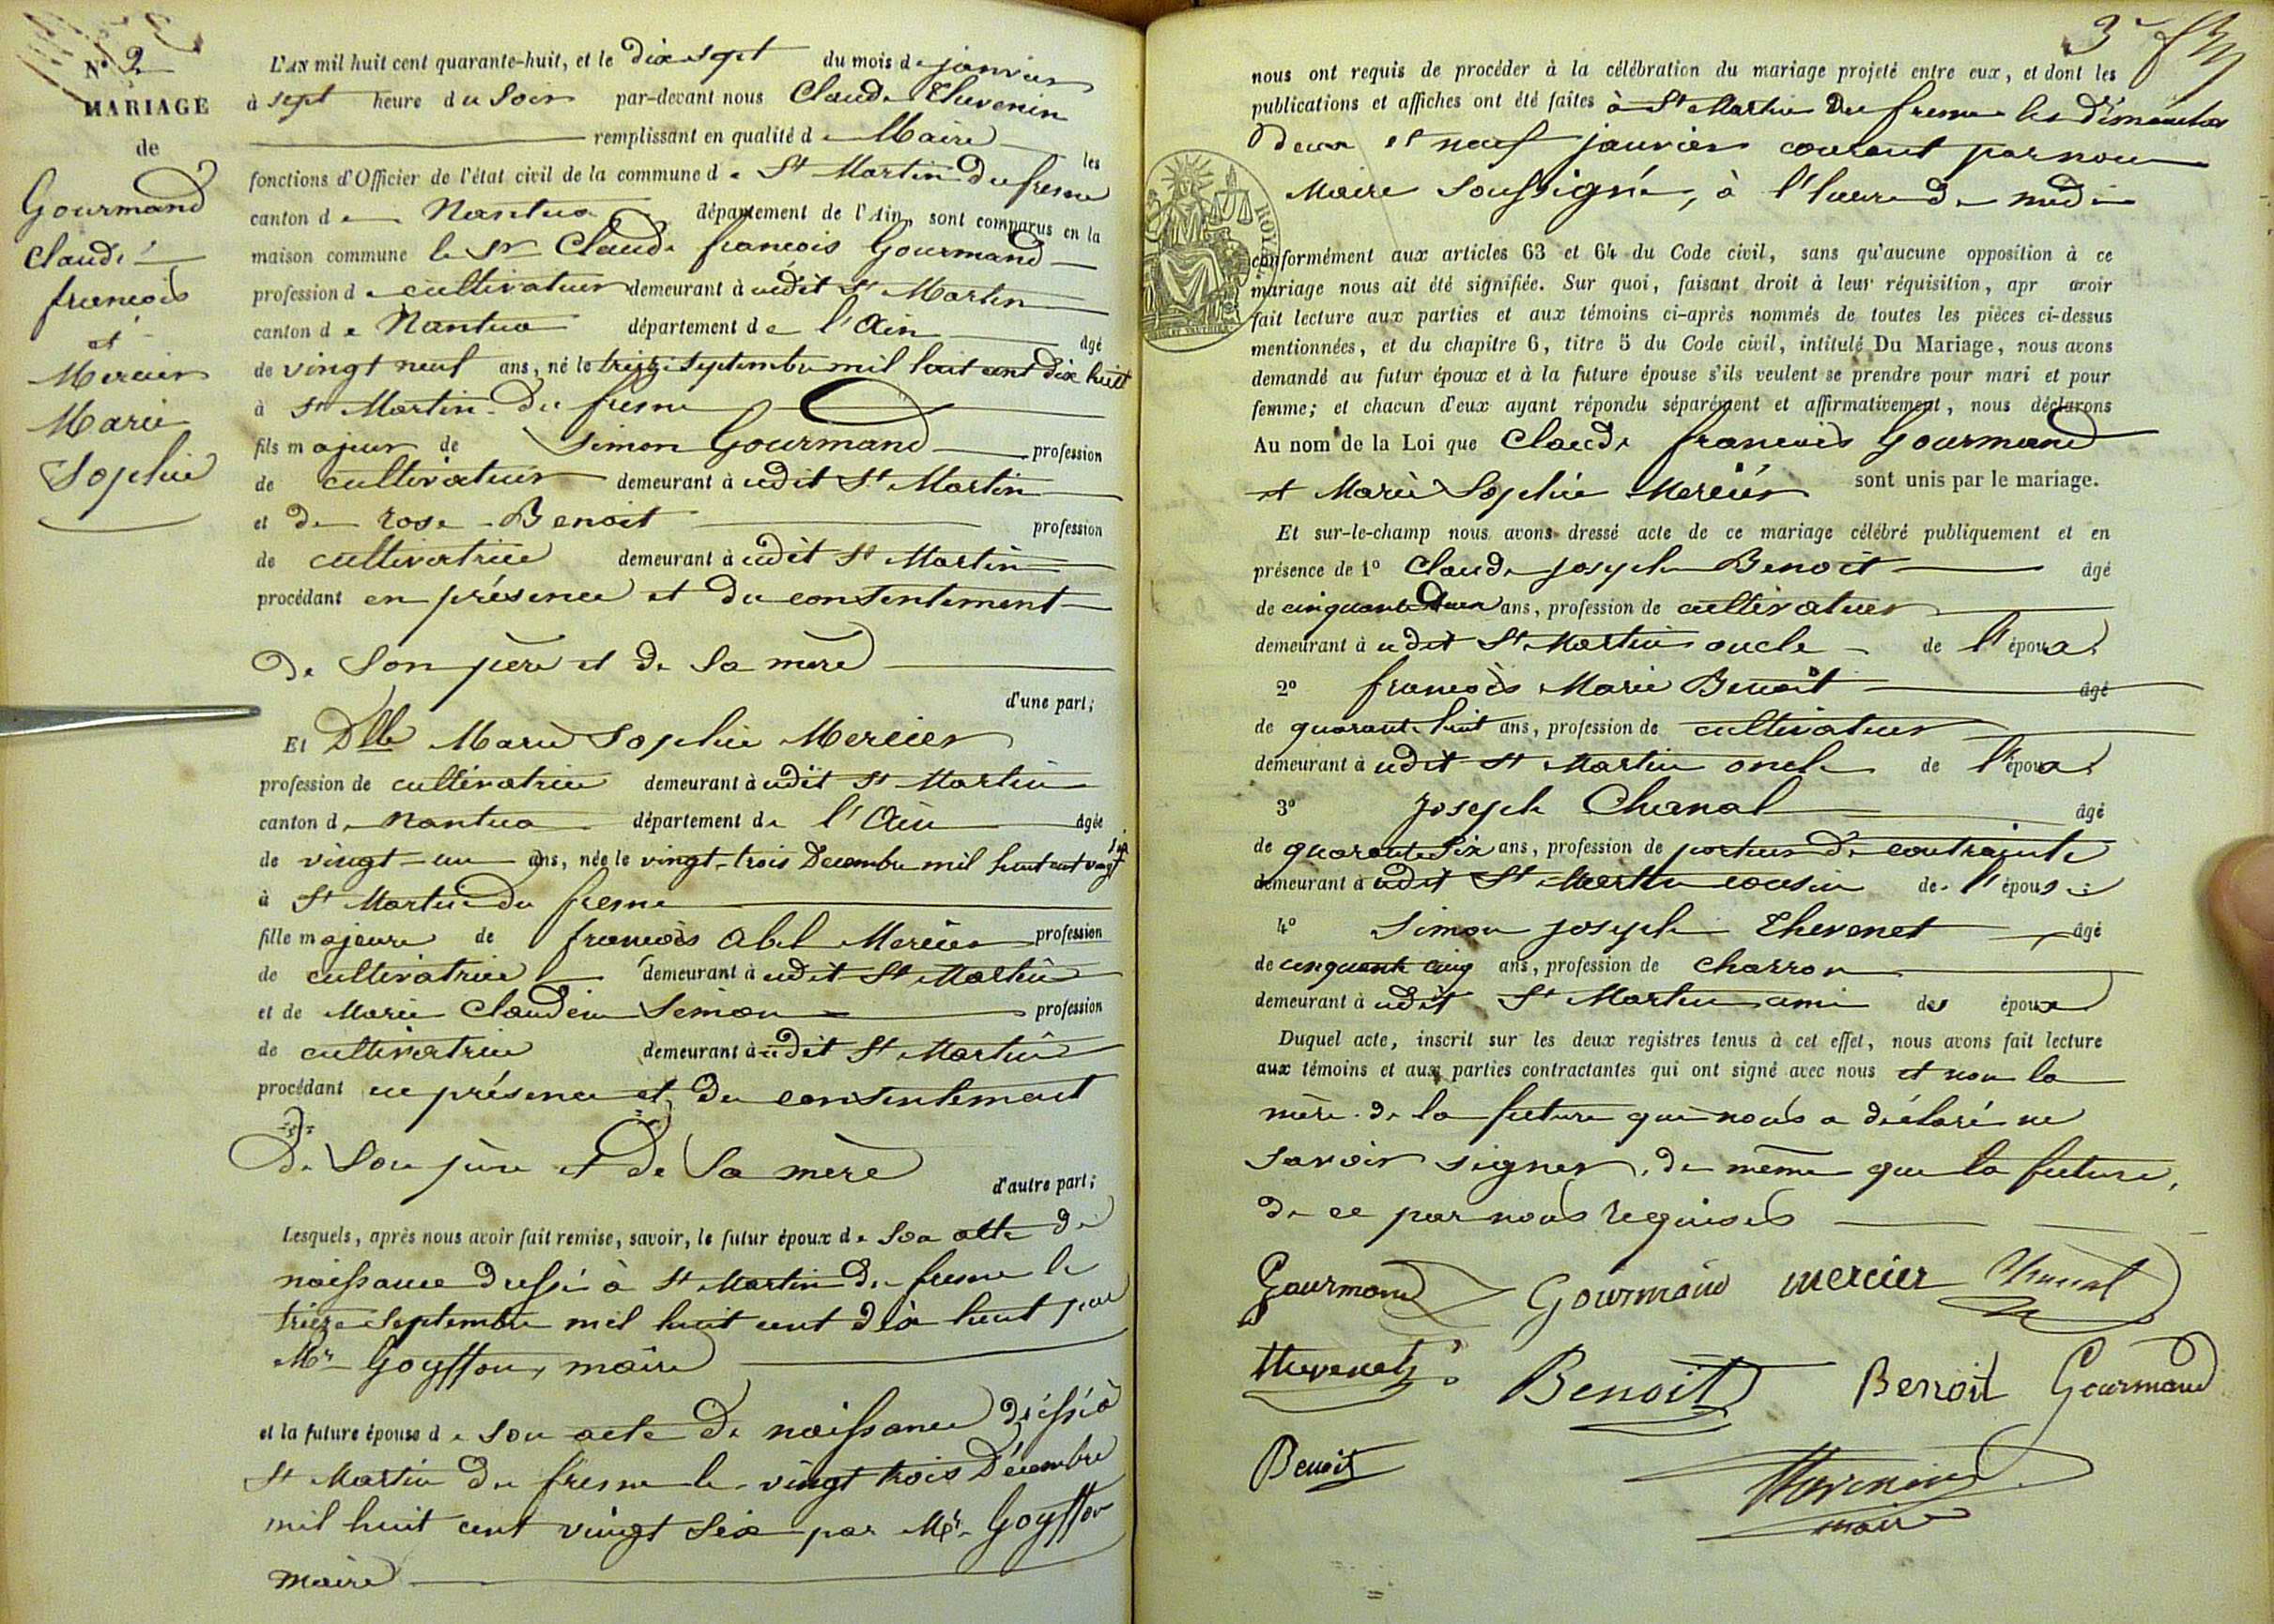 N° 2
MARIAGE
de
Gourmand
Claude
françois
et
Mercier
Marie
Sophie
L'AN mil huit cent quarante-huit, et le dix sept du mois de janvier
à sept heure du Soir par-devant nous Claude Thevenin
remplissant en qualité de Maire les
fonctions d'Officier de l'état civil de la commune de St Martin du fresne
canton de Nantua département de l'Ain, sont comparus en la
maison commune le Sr Claude françois Gourmand
profession de cultivateur demeurant à udit St Martin
canton de Nantua département de l'Ain âgé
de vingt neuf ans, né le treize Septembre mil huit cent dix huit
à St Martin du fresne
fils majeur de Simon Gourmand profession
de cultivateur demeurant à udit St Martin
et de rose Benoit profession
de cultivatrice demeurant à udit St Martin
procédant en présence et du consentement
de Son père et de Sa mère
d'une part;
Et Dlle Marie Sophie Mercier
profession de cultivatrice demeurant à udit St Martin
canton de Nantua département de l'Ain âgée
de vingt-un ans, née le vingt-trois Decembre mil huit cent vingt six
à St Martin du fresne
fille majeure de françois Abel Mercier profession
de cultivatrice demeurant à udit St Martin
et de Marie Claudine Simon profession
de cultivatrice demeurant à udit St Martin
procédant en présence et du consentement
de Son père et de Sa mère
d'autre part;
Lesquels, après nous avoir fait remise, savoir, le futur époux de Son acte de
naissance dressé à St Martin du fresne le
treize Septembre mil huit cent dix huit par
Mr Goyffon, maire
et la future épouse de Son acte de naissance dressé à
St Martin du fresne le vingt trois Décembre
mil huit cent vingt Six par Mr Goyffon
maire
3e
nous ont requis de procéder à la célébration du mariage projeté entre eux, et dont les
publications et affiches ont été faites à St Martin du fresne les dimanches
deux et neuf janvier courant par nous
Maire Soussigné, à l'heure de midi
ROYAL
conformément aux articles 63 et 64 du Code civil, sans qu'aucune opposition à ce
mariage nous ait été signifiée. Sur quoi, faisant droit à leur réquisition, apr avoir
fait lecture aux parties et aux témoins ci-après nommés de toutes les pièces ci-dessus
mentionnées, et du chapitre 6, titre 5 du Code civil, intitulé Du Mariage, nous avons
demandé au futur époux et à la future épouse s'ils veulent se prendre pour mari et pour
femme; et chacun d'eux ayant répondu séparément et affirmativement, nous déclarons
Au nom de la Loi que Claude françois Gourmand
et Marie Sophie Mercier sont unis par le mariage.
Et sur-le-champ nous avons dressé acte de ce mariage célébré publiquement et en
présence de 1° Claude joseph Benoit âgé
de cinquante deux ans, profession de cultivateur
demeurant à udit St Martin oncle de l'époux
2° françois Marie Benoit âgé
de quarante huit ans, profession de cultivateur
demeurant à udit St Martin oncle de l'époux
3° joseph Chanal âgé
de quarante Six ans, profession de porteur de contrainte
demeurant à udit St Martin cousin de l'épouse
4° Simon joseph Thevenet âgé
de cinquante cinq ans, profession de charron
demeurant à udit St Martin ami des époux
Duquel acte, inscrit sur les deux registres tenus à cet effet, nous avons fait lecture
aux témoins et aux parties contractantes qui ont signé avec nous et non la
mère de la future qui nous a déclaré ne
savoir signer, de même que la future,
de ce par nous requises
Gourmand Gourmand mercier Chanal
thevenet Benoit Benoit Gourmand
Benoit Thevenin
maire